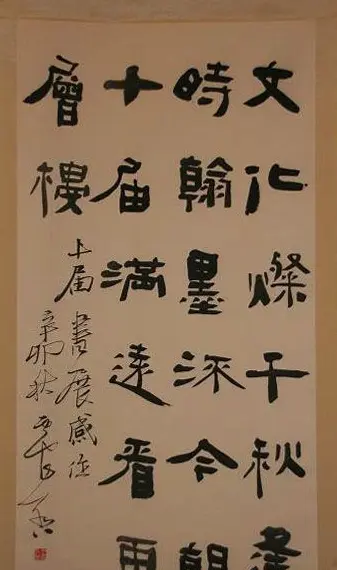 文化燦千秋逢
時翰墨深今朝
十届满遠看
層樓
十届書展感作
辛卯秋